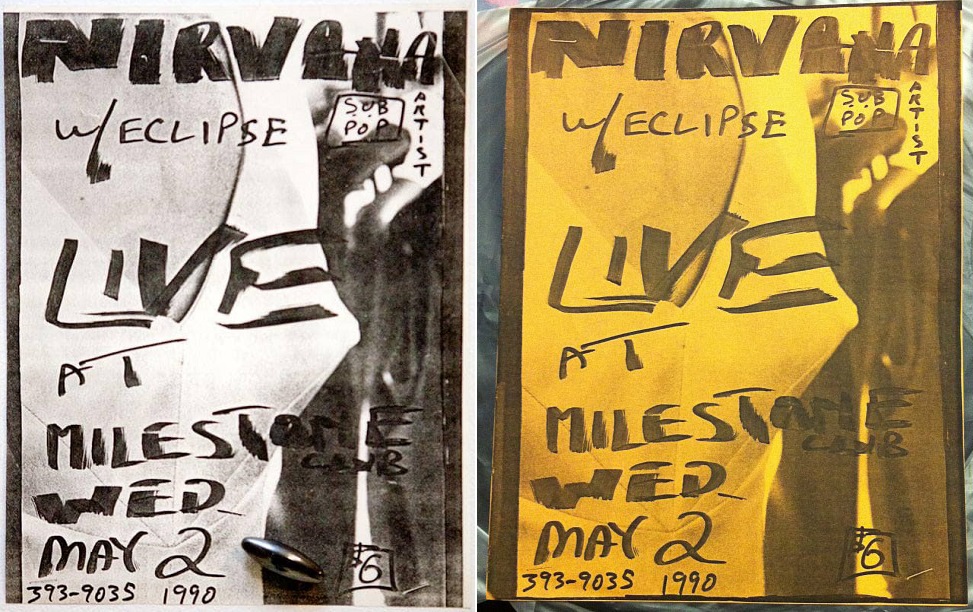 NIRVANA
w/ ECLIPSE
SUB
POP
ARTIST
LIVE
AT
MILESTONE
CLUB
WED.
MAY 2
$6
393-9035 1990
NIRVANA
w/ ECLIPSE
SUB
POP
ARTIST
LIVE
AT
MILESTONE
CLUB
WED.
MAY 2
$6
393-9035 1990